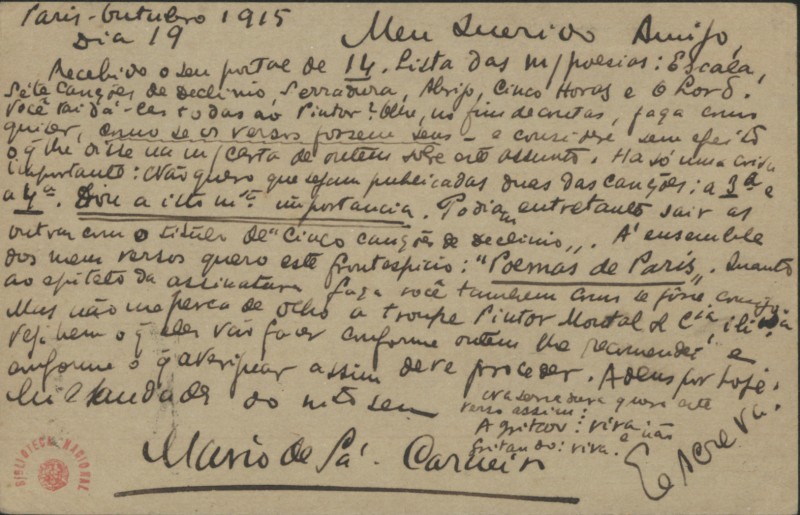 Paris - Outubro 1915
Dia 19
Meu Querido Amigo,
Recebido o seu postal de 14. Lista das m/poesias: Escala,
Sete Canções de declinio, Serradura, Abrigo, Cinco Horas e O Lord.
Você vai dá-las todas ao Pintor? Olhe, no fim de contas, faça como
quiser, como se os versos fossem seus - e considere sem efeito
o q̃ lhe disse na m/carta de ontem sobre este assunto. Ha só uma coisa
importante: Não quero que sejam publicadas duas das canções: a 3ª e
a 4ª. Dou a isto mtª importancia. Podiam entretanto sair as
outras com o titulo de "Cinco canções de declinio,,. Á ensemble
dos meus versos quero este frontespicio: "Poemas de Paris,,. Quanto
ao epiteto da assinatura faça você tambem como se fôsse comsigo.
Mas não me perca de olho a troupe Pintor Montal & Cia
veja bem o q̃ eles vão fazer conforme ontem lhe recomendei e
conforme o q̃ averiguar assim deve proceder. Adeus por hoje.
Mil saudades do mto seu
Mario de Sá-Carneiro
Na serradura quero este
verso assim:
A gritar: viva
e não
gritando: viva.
Escreva.
BIBLIOTECA NACIONAL